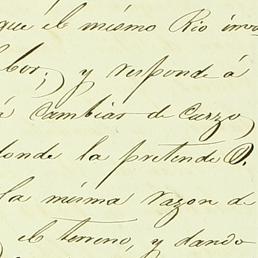 que el mismo Rio inva
lbor; y responde á
é Cambiar de Curzo
donde la pretende D.
la misma razon de
el terreno, y dando